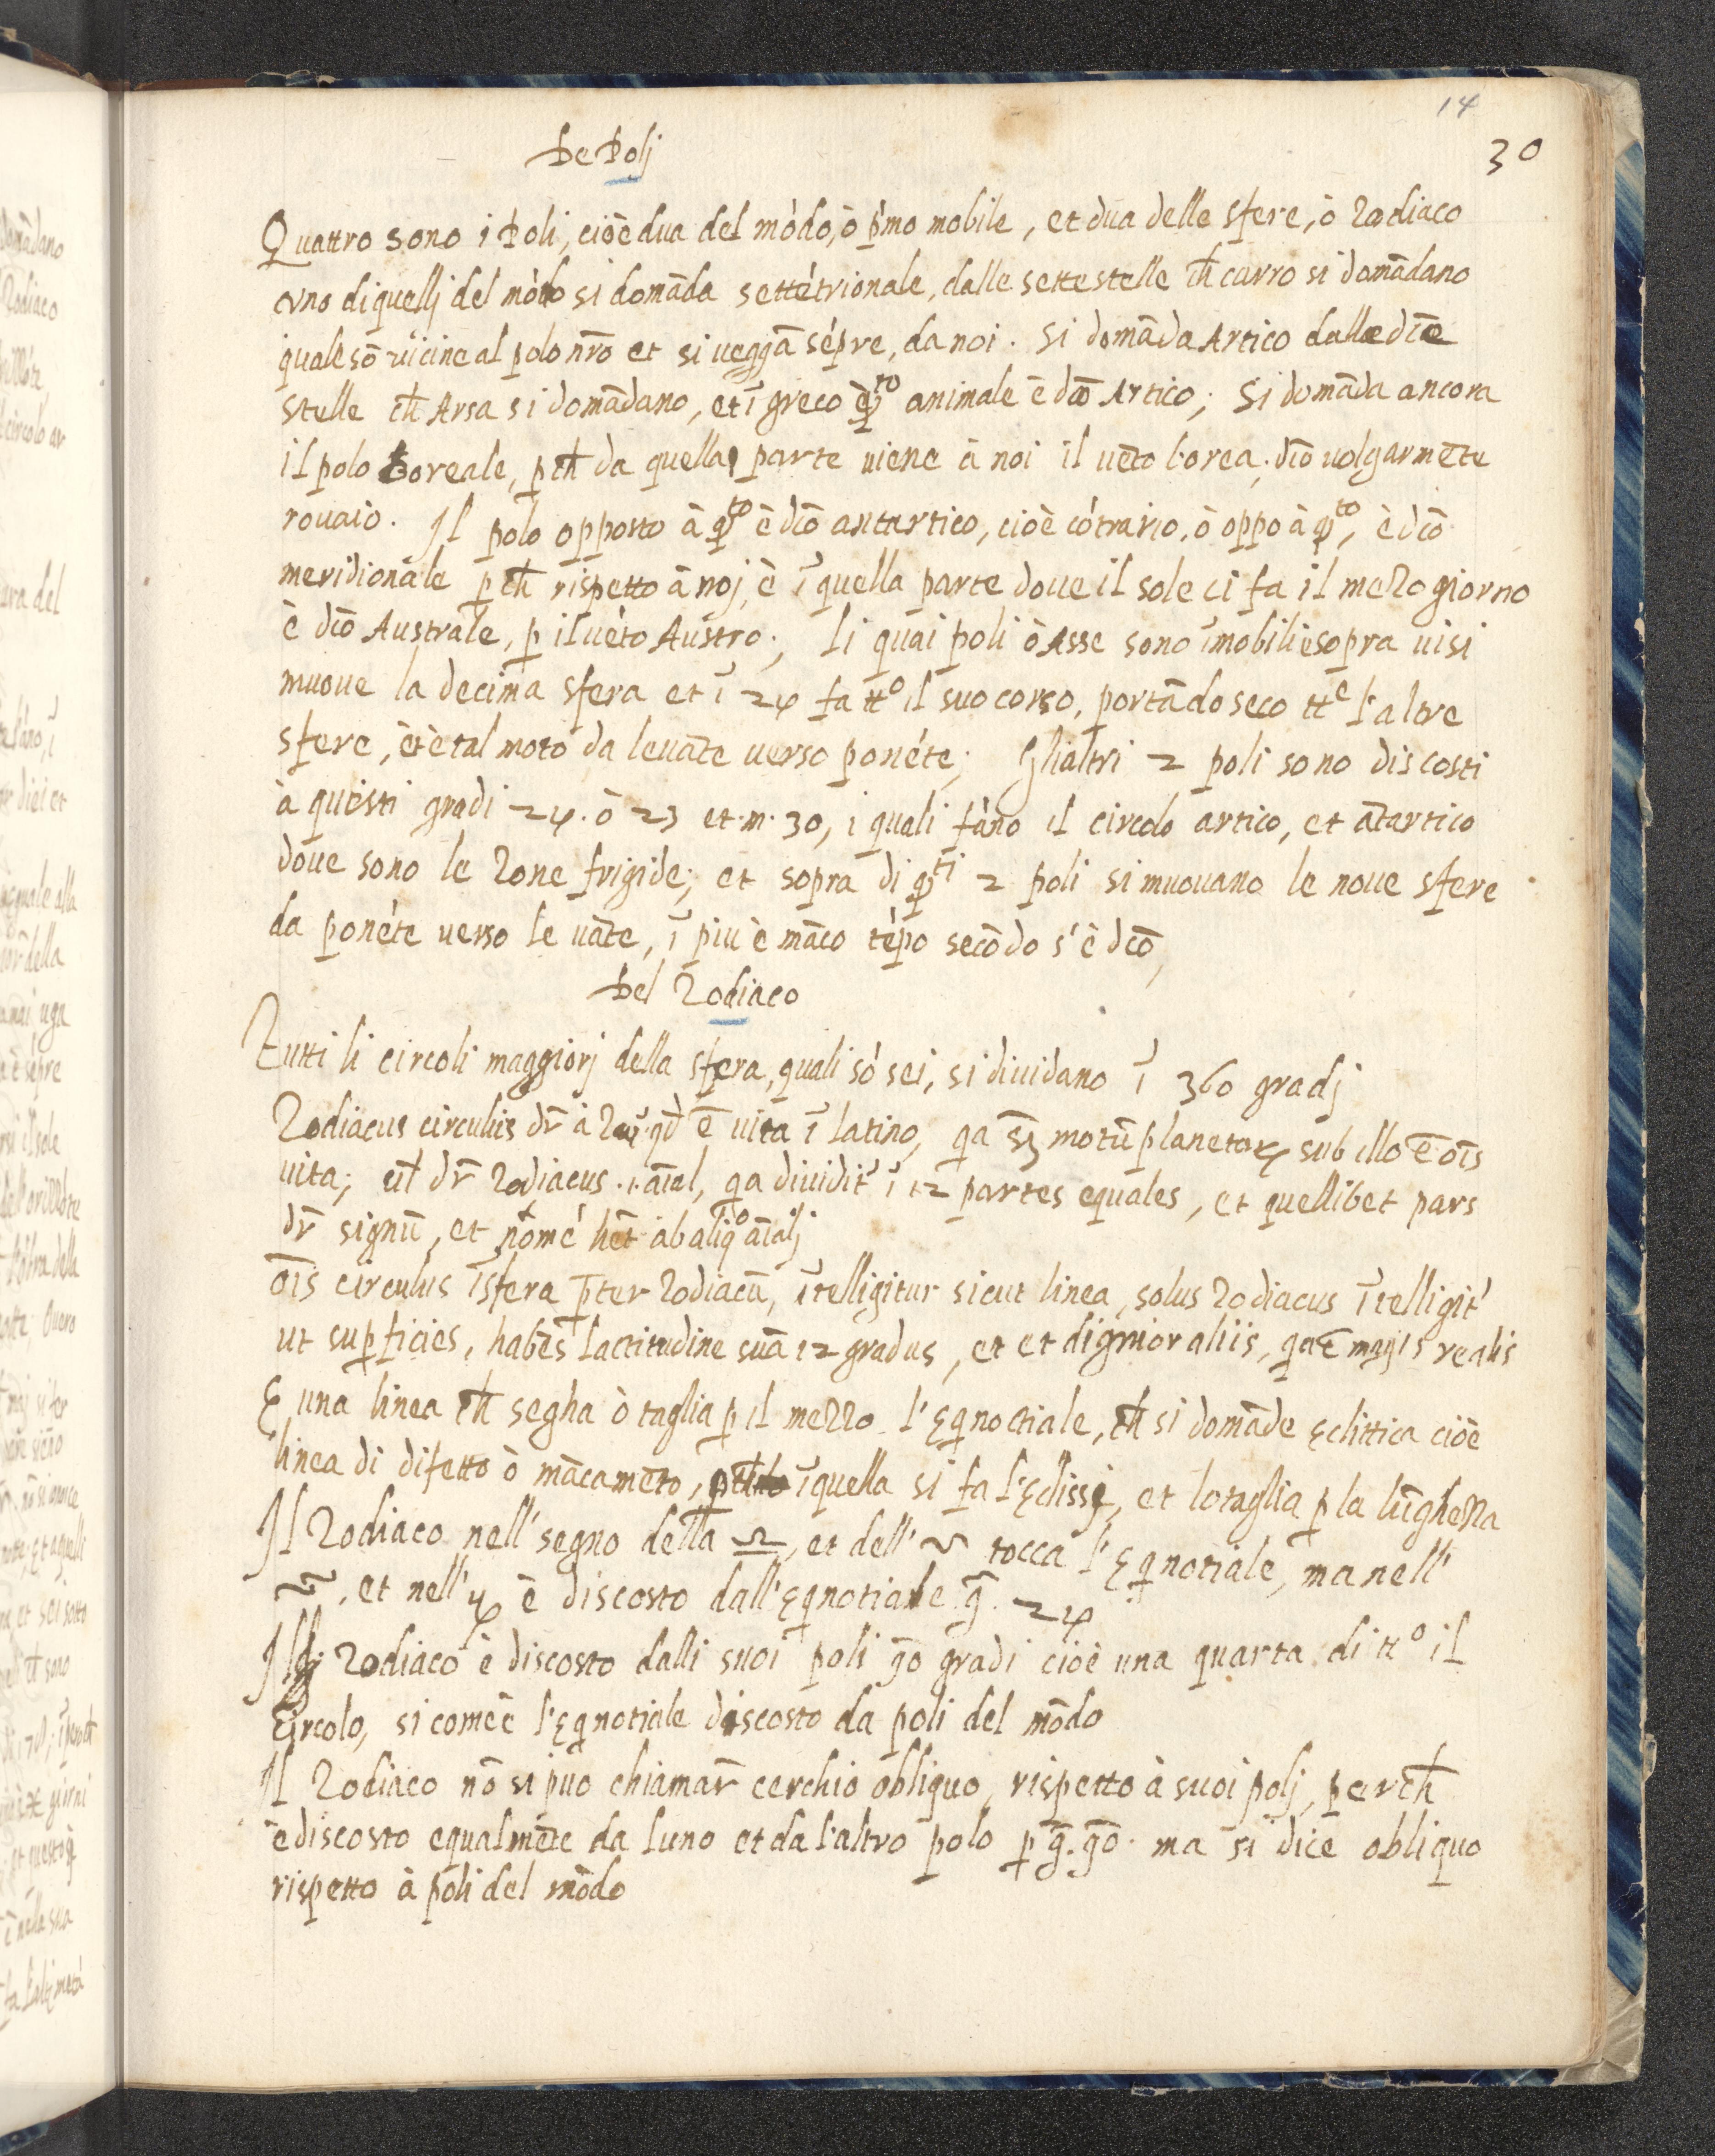 14
30
De Polj
Quattro sono i Poli, cioè dua del mōdo, ò p̄mo mobile, et dua delle sfere, ò Zodiaco
uno di quellj del mōdo si domāda settētrionale, dalle sette stelle ch̄ carro si domādano
quale sō uicine al polo nr̄o et si ueggā sēpre, da noi. Si domāda Artico dalle dc̄e
stelle ch̄ Arsa si domādano, et ī greco q̄to animale è dc̄o Artico; Si domāda ancora
il polo Boreale, p̱ch̄ da quella parte uiene à noi il uēto borea, dc̄o uolgarmēte
rouaio. Il polo opposto à q̄to è dc̄o antartico, cioè cōtrario, ò oppo à q̄to, è dc̄o
meridionale p̱ch̄ rispetto à noj, è ī quella parte doue il sole ci fa il mezo giorno
è dc̄o Australe, p̱ il uēto Austro; li quai poli ò Asse sono īmobili e sopra ui si
muoue la decima sfera et ī 24 fa tt° il suo corso, portādo seco tte l'altre
sfere, et è tal moto da leuāte uerso ponēte; Gli altri 2 poli sono discosti
à questi gradi 24. ò 23 et m. 30, i quali fāno il circolo artico, et ātartico
doue sono le Zone frigide; et sopra di q̄ti 2 poli si muouano le noue sfere
da ponēte uerso leuāte, ī piu è māco tēpo secōdo s'è dc̄o,
Del Zodiaco
Tutti li circoli maggiorj della sfera, quali sō sei, si diuidano ī 360 gradj
Zodiacus circulus dr̄ à qd̄ ē uita ī latino, qa motū planetaꝝ sub illo ē ōis
uita; ul̄ dr̄ Zodiacus .i. aīal, qa diuidit̄ ī 12 partes equales, et quellibet pars
dr̄ signū, et nomē hēt ab aliq° aīalj
ōis circulus ī sfera p̄ter Zodiacū, ītelligitur sicut linea, solus Zodiacus ītelligit̄
ut sup̱ficies, habēs lactitudine suā 12 gradus, et et dignior aliis, qa ē magis realis
E una linea ch̄ segha ò taglia p̱ il mezzo l'Eqnoctiale, ch̄ si domāde Eclittica cioè
linea di difetto ò mācamēto, ī quella si fa l'Eclissj, et lo taglia p̱ la lūghezza
Il Zodiaco nell' segno della ♎, et dell' ♈ tocca l'Eqnotiale, ma nell'
et nell' è discosto dall'Eqnotiale ḡ. 24
Il Zodiaco è discosto dalli suoi poli 90 gradi cioè una quarta di tt° il
Circolo, si come è l'Eqnotiale discosto da poli del mōdo
Il Zodiaco nō si puo chiamar̄ cerchio obliquo, rispetto à suoi polj, perch̄
è discosto equalmēte da luno et da l'altro polo p̱ ḡ. 90. ma si dice obliquo
rispetto à poli del mōdo